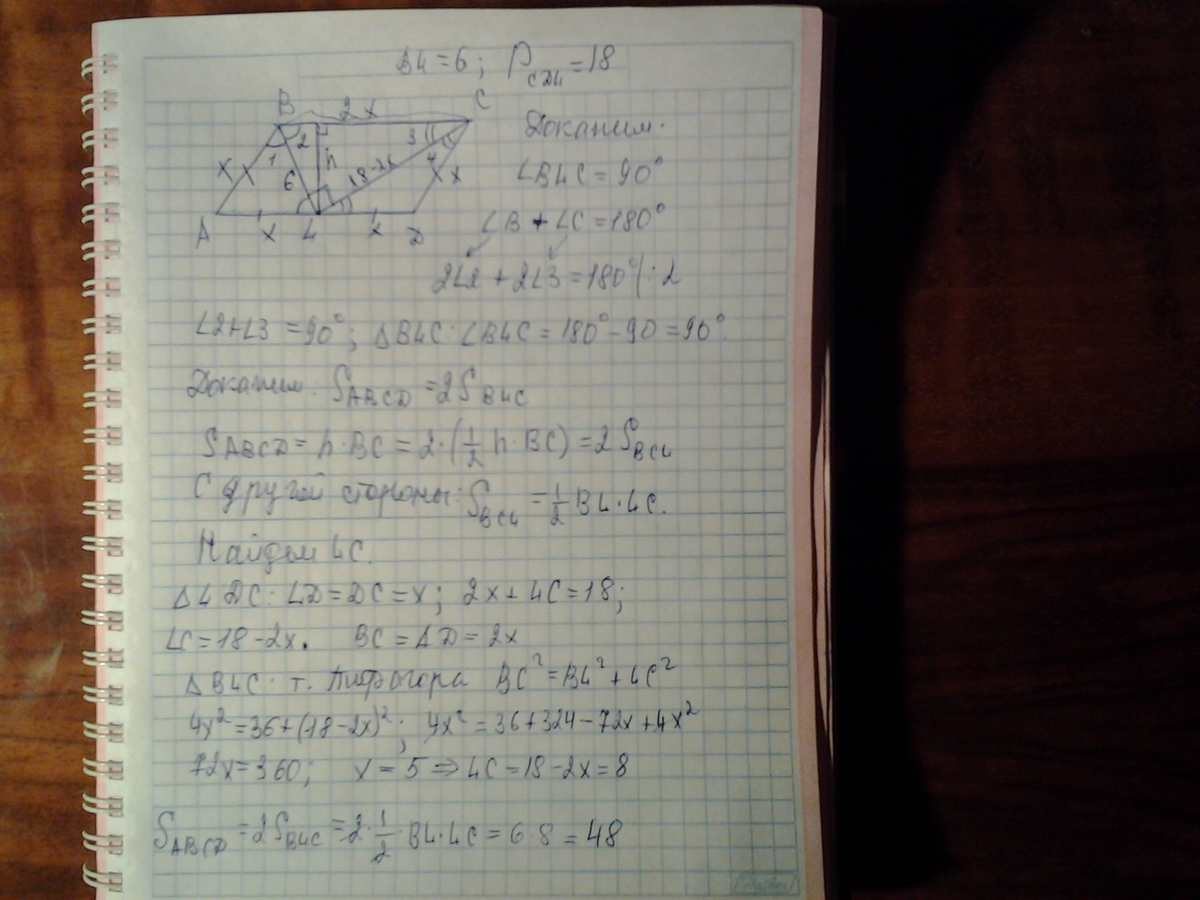 BL = 6; P_CDL = 18
B 2x C
Докажем.
x 1 2 h 3 4 x
6 18-2x
A x L x D
∠BLC = 90°
∠B + ∠C = 180°
2∠2 + 2∠3 = 180° | : 2
∠2+∠3 = 90°; ΔBLC: ∠BLC = 180° - 90 = 90°.
Докажем: S_ABCD = 2S_BLC
S_ABCD = h·BC = 2·(1/2 h·BC) = 2S_BCL
С другой стороны: S_BCL = 1/2 BL·LC.
Найдем LC.
ΔLDC: LD = DC = x; 2x + LC = 18;
LC = 18 - 2x. BC = AD = 2x
ΔBLC: т. Пифагора BC² = BL² + LC²
4x² = 36 + (18 - 2x)²; 4x² = 36 + 324 - 72x + 4x²
72x = 360; x = 5 ⇒ LC = 18 - 2x = 8
S_ABCD = 2S_BLC = 2·1/2·BL·LC = 6·8 = 48